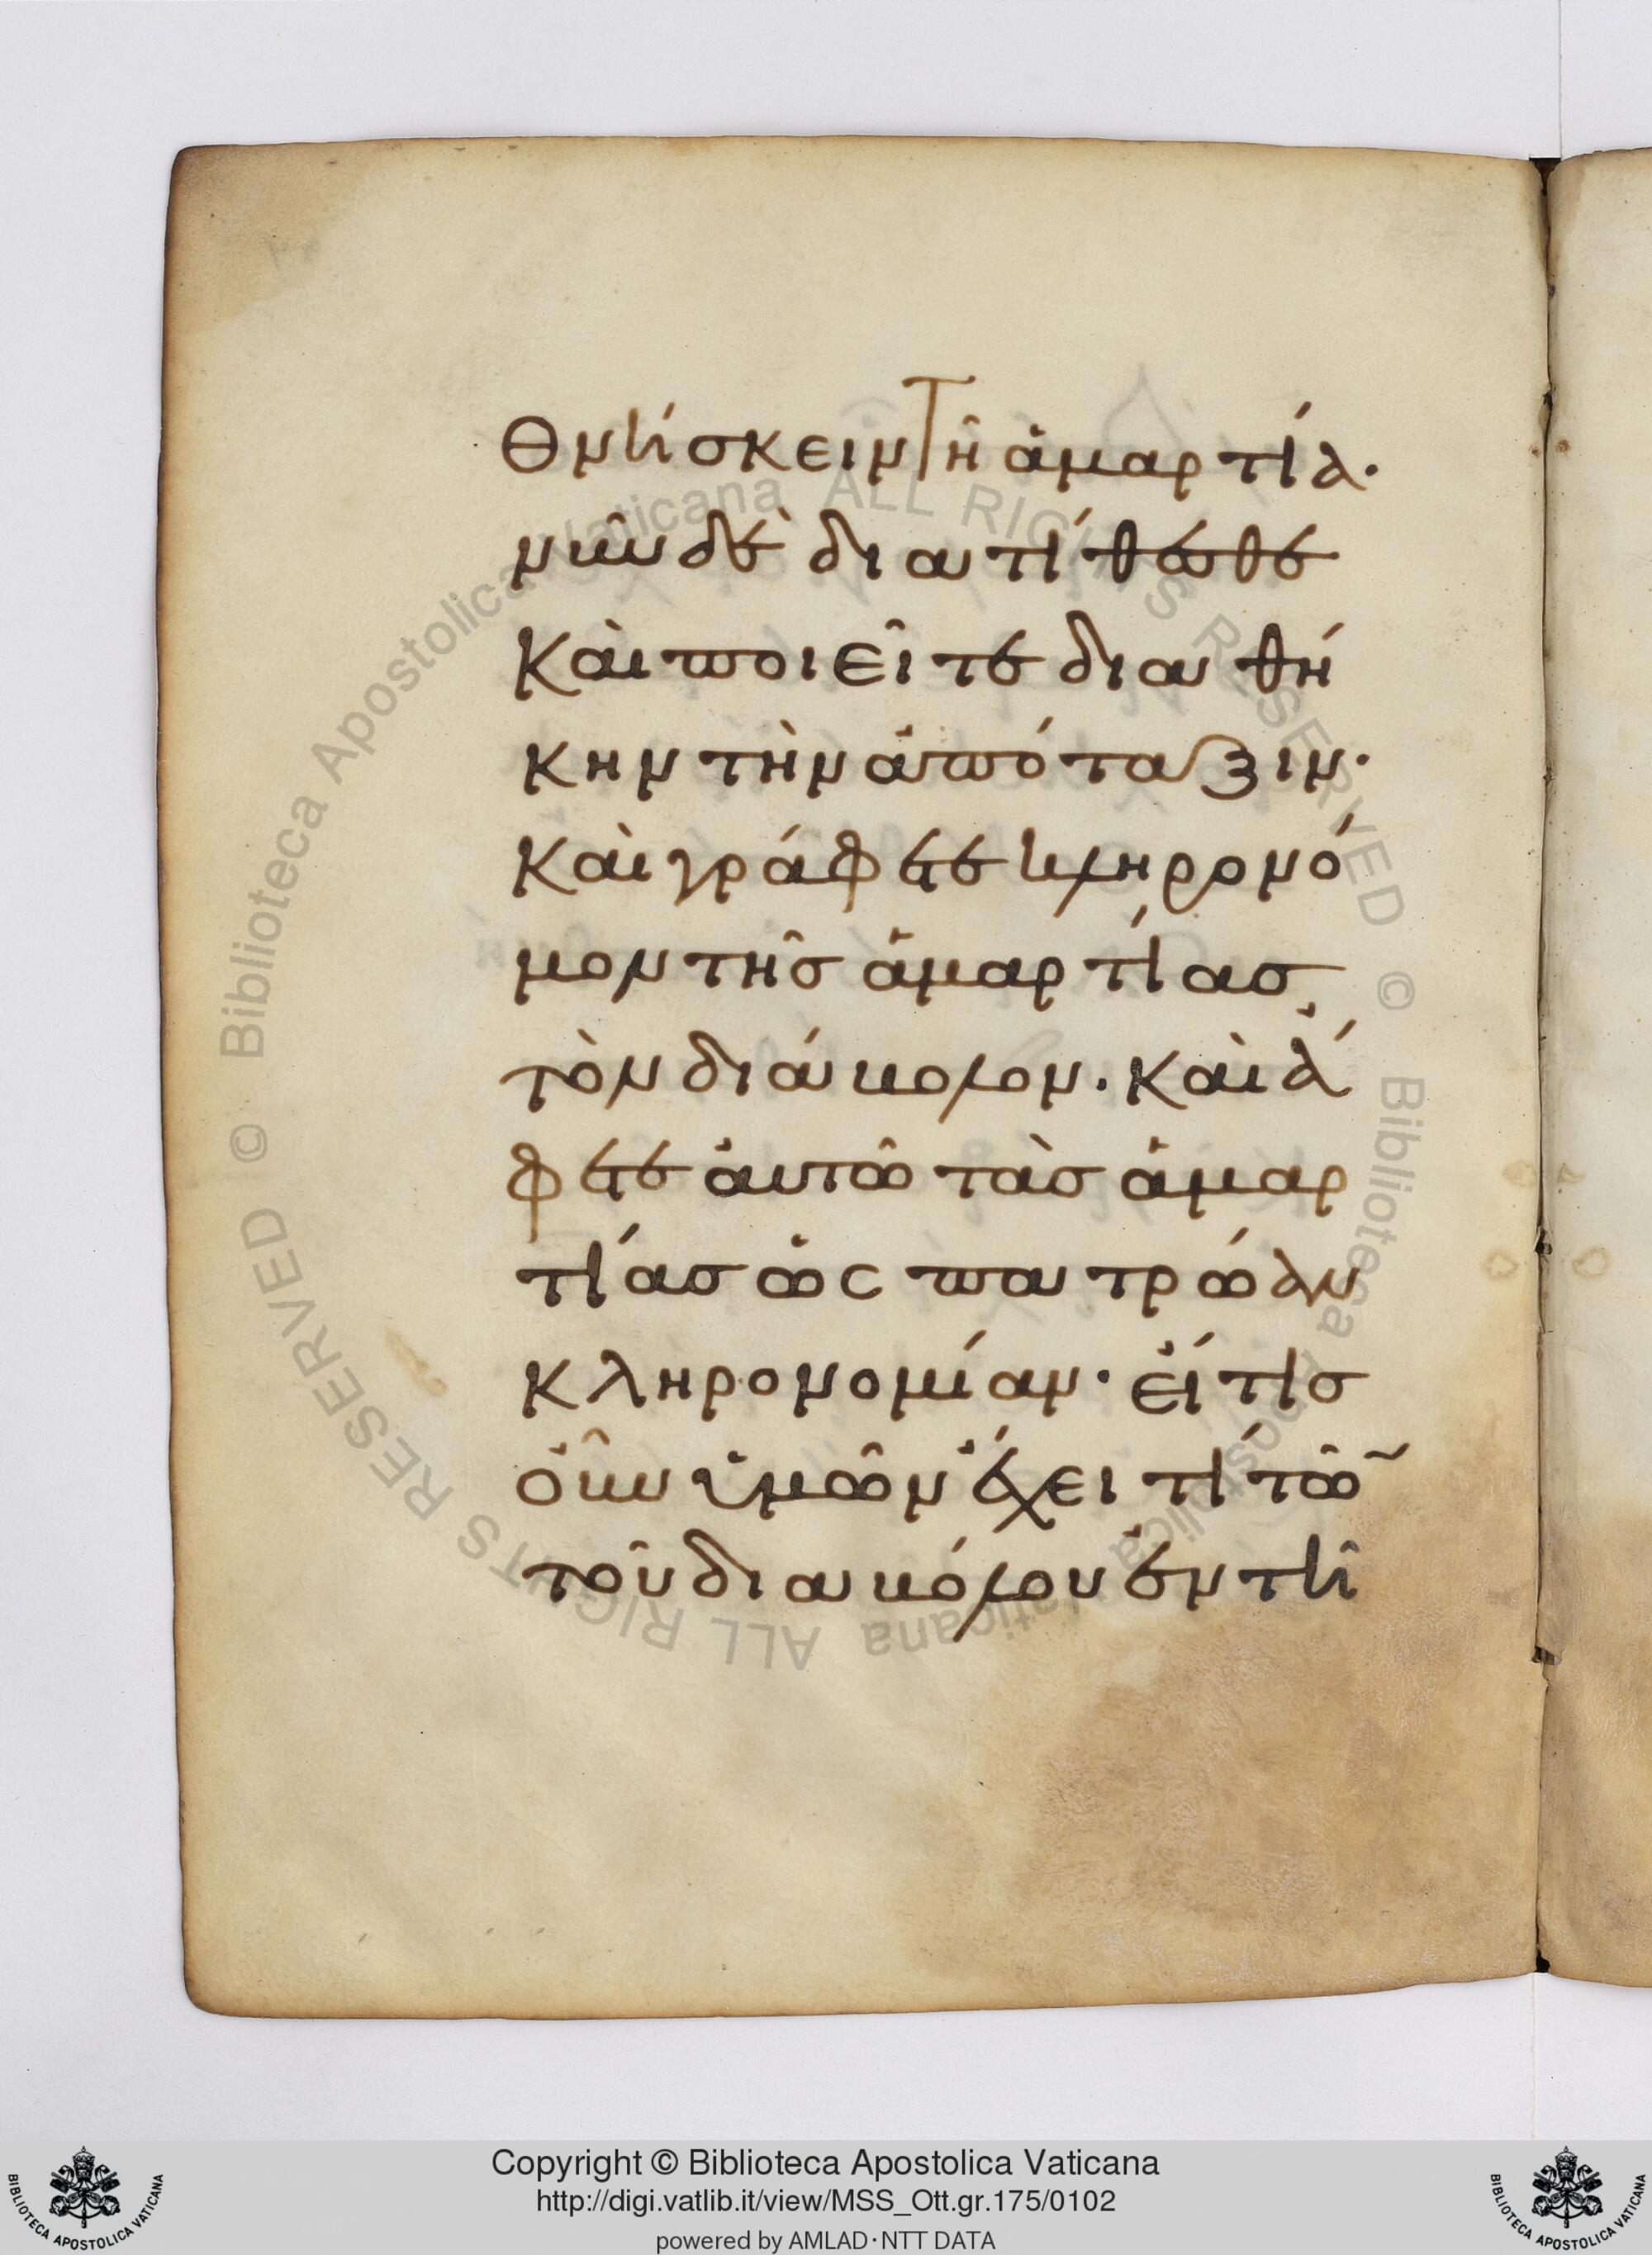 θνήσκειν τῆ ἁμαρτία·
νῦν δὲ διατίθεσθε
καὶ ποιεῖτε διαθή
κην τὴν ἀπόταξιν·
καὶ γράφετε κληρονό
μον τῆς ἁμαρτίας
τὸν διάβολον. καὶ ἄ
φετε αὐτῶ τὰς ἁμαρ
τίας ὡς πατρώαν
κληρονομίαν· εἴ τις
οὖν ὑμῶν ἔχει τί τῶ
τοῦ διαβόλου ἐν τῆ
Copyright © Biblioteca Apostolica Vaticana
http://digi.vatlib.it/view/MSS_Ott.gr.175/0102
powered by AMLAD·NTT DATA
BIBLIOTECA APOSTOLICA VATICANA
BIBLIOTECA APOSTOLICA VATICANA
© Biblioteca Apostolica Vaticana ALL RIGHTS RESERVED © Biblioteca Apostolica Vaticana ALL RIGHTS RESERVED